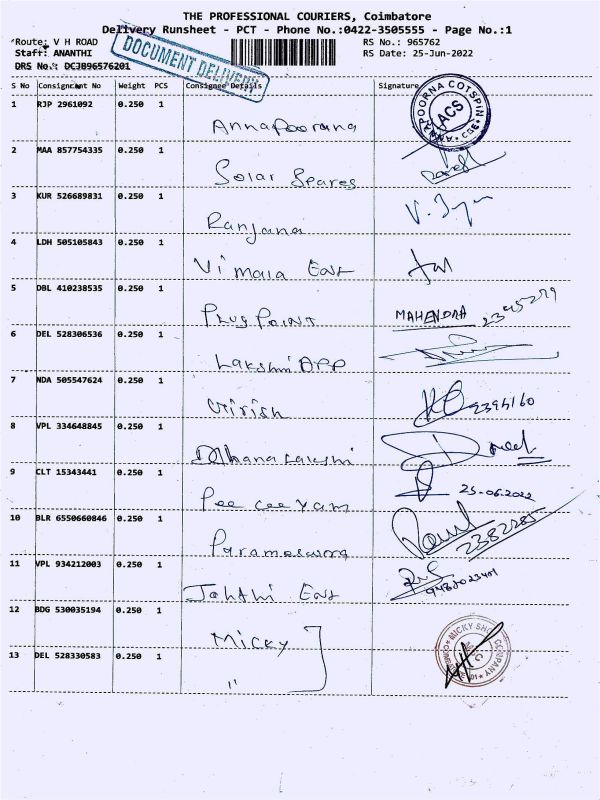 THE PROFESSIONAL COURIERS, Coimbatore
Delivery Runsheet - PCT - Phone No.:0422-3505555 - Page No.:1
Route: V H ROAD RS No.: 965762
Staff: ANANTHI RS Date: 25-Jun-2022
DRS No.: DCJB96576201
DOCUMENT DELIVERY
S No Consignment No Weight PCS Consignee Details Signature
1 RJP 2961092 0.250 1
Annapoorana
ANNAPOORNA COTSPIN ACS CBE
2 MAA 857754335 0.250 1
Solar Spares
3 KUR 526689831 0.250 1
Ranjana
4 LDH 505105843 0.250 1
Vimala Ent
5 DBL 410238535 0.250 1
Plug Point MAHENDRA
6 DEL 528306536 0.250 1
Lakshmi
7 NDA 505547624 0.250 1
Girish
8 VPL 334648845 0.250 1
Dhanalakshmi
9 CLT 15343441 0.250 1
Pee cee yam 25-06-2022
10 BLR 6550660846 0.250 1
11 VPL 934212003 0.250 1
Ent
12 BDG 530035194 0.250 1
Micky
MICKY SHOE COMPANY
13 DEL 528330583 0.250 1
"